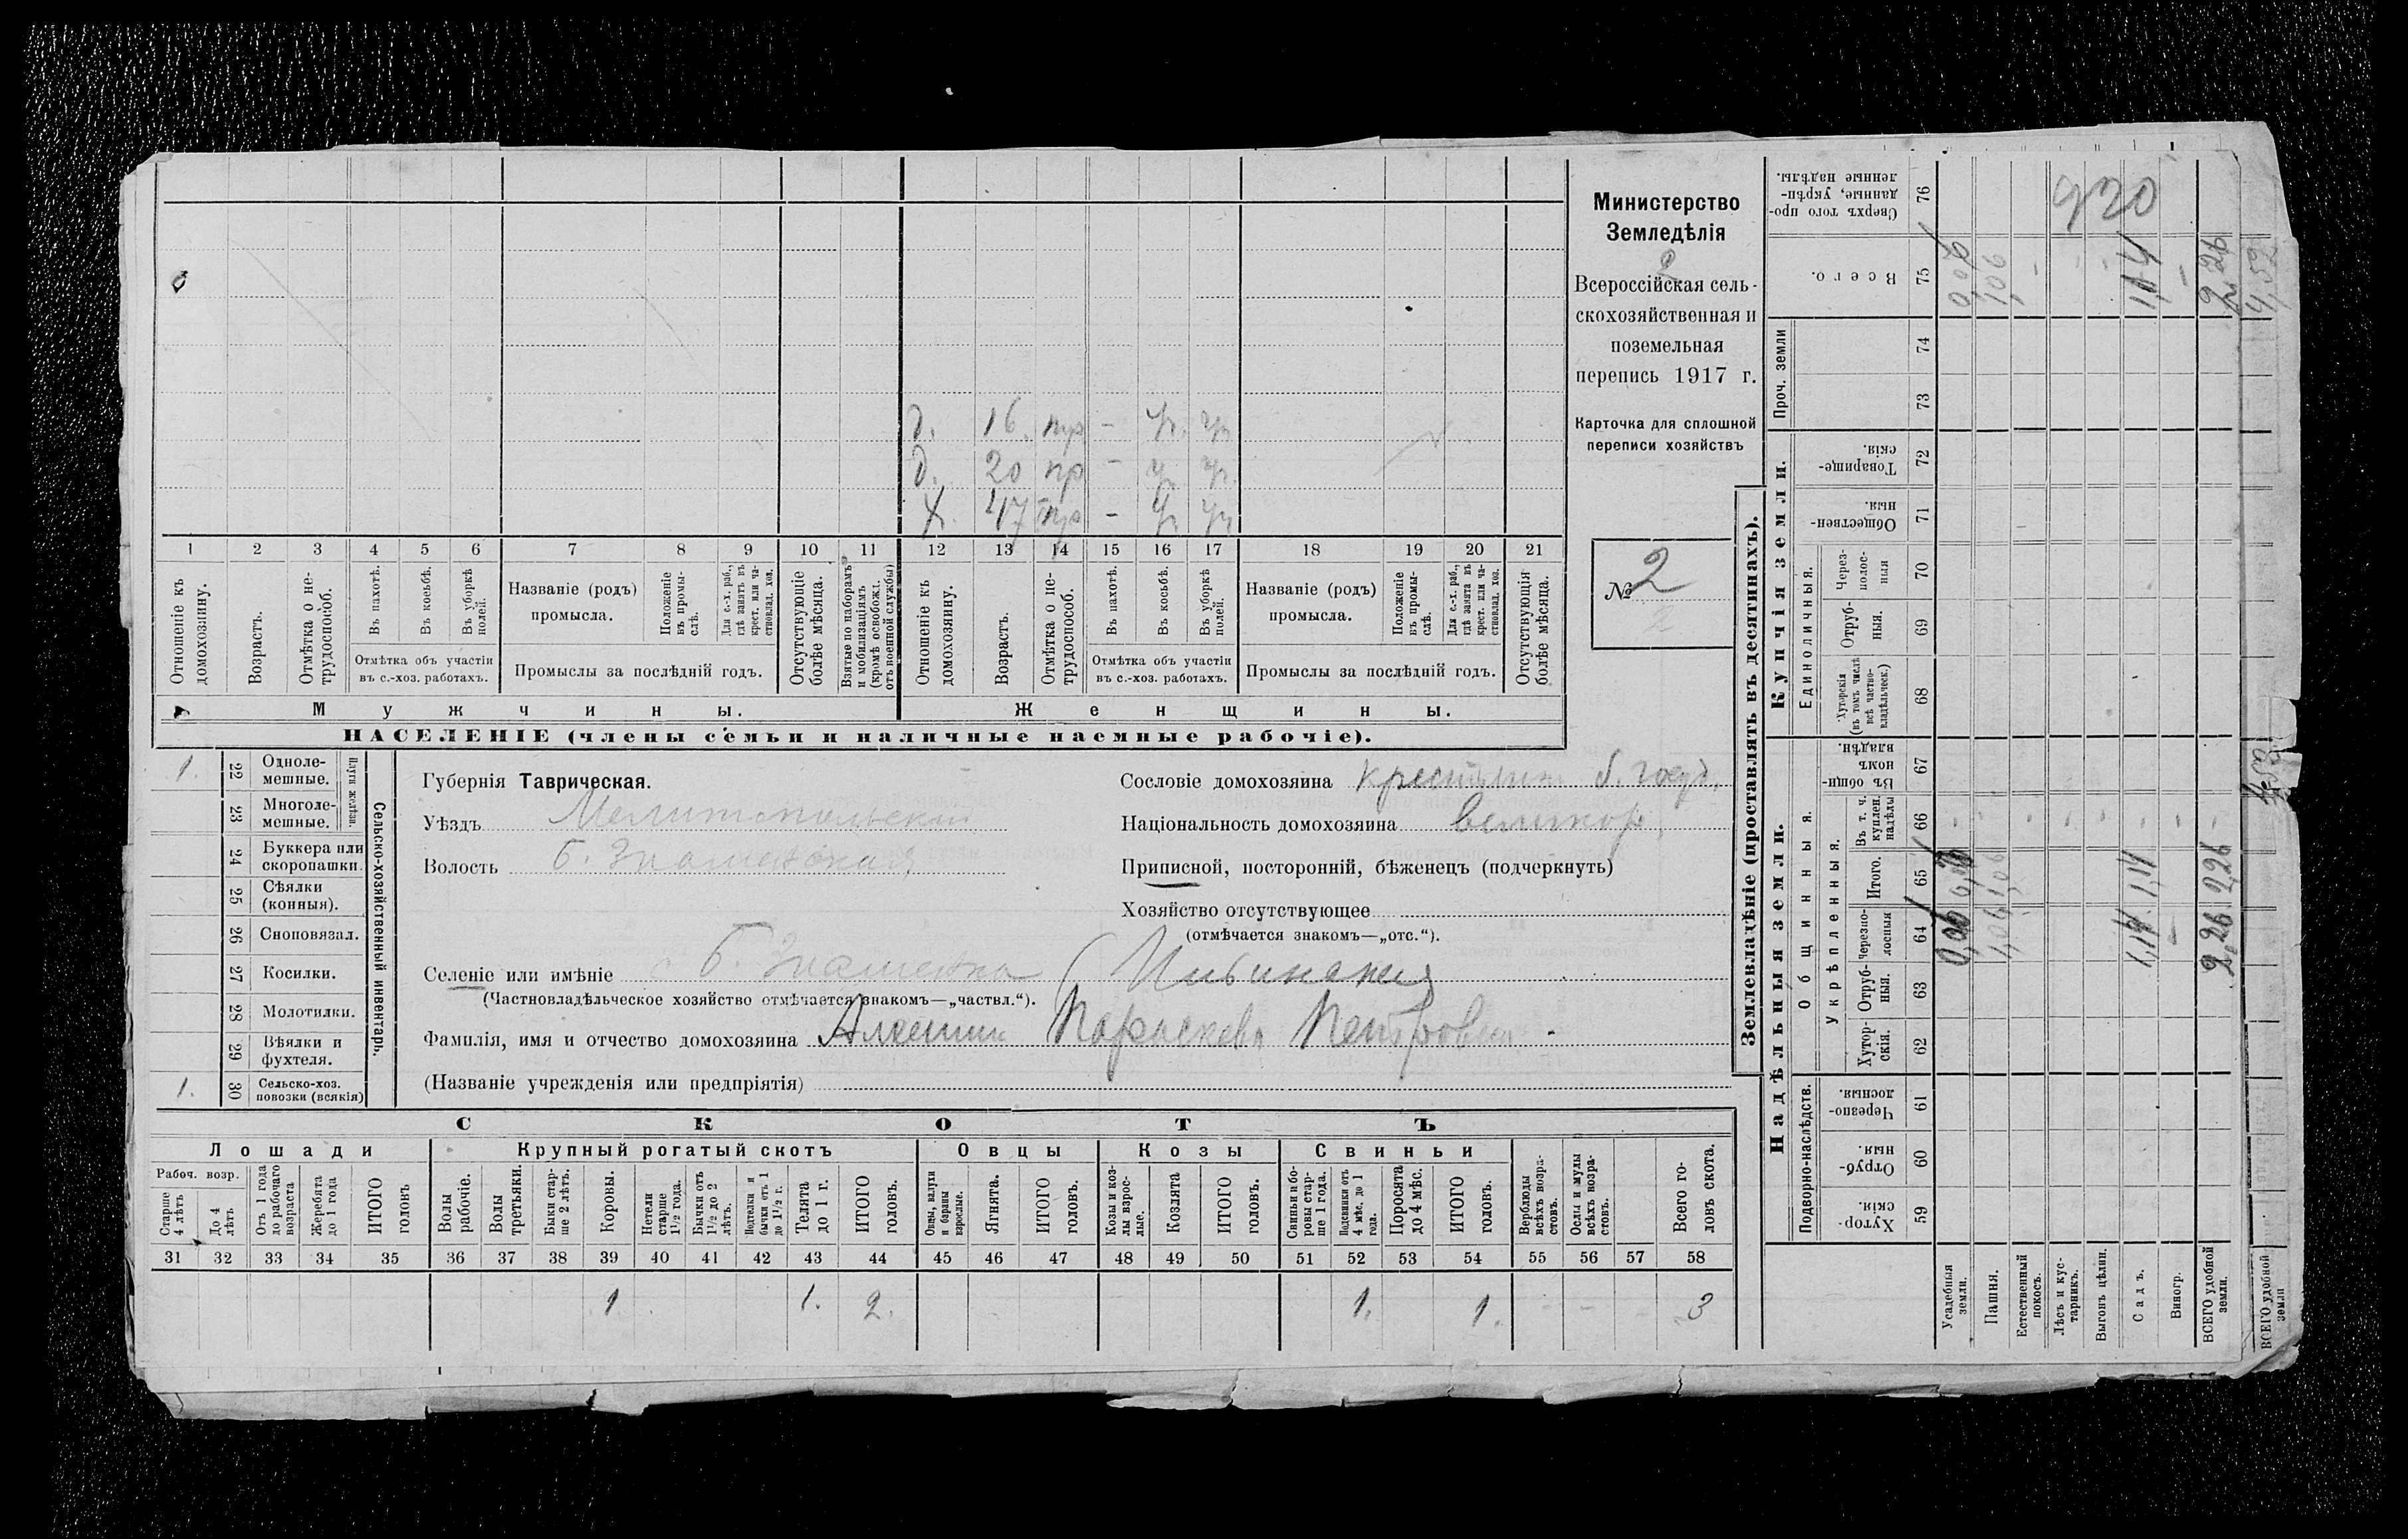 д. 16. нр - ур. ур
д. 20 нр - ур ур.
х. 47 нр - ур ур
1 2 3 4 5 6 7 8 9 10 11 12 13 14 15 16 17 18 19 20 21
Отношеніе къ домохозяину.
Возрастъ.
Отмѣтка о нетрудоспособ.
Въ пахотѣ.
Въ косьбѣ.
Въ уборкѣ полей.
Отмѣтка объ участіи
въ с.-хоз. работахъ.
Названіе (родъ)
промысла.
Положеніе въ промыслѣ.
Для с.-х. раб., гдѣ занятъ въ крест. или частновлад. хоз.
Промыслы за послѣдній годъ.
Отсутствующіе болѣе мѣсяца.
Взятые по наборамъ и мобилизаціямъ (кромѣ освобожд. отъ военной службы)
Отношеніе къ домохозяину.
Возрастъ.
Отмѣтка о нетрудоспособ.
Въ пахотѣ.
Въ косьбѣ.
Въ уборкѣ полей.
Отмѣтка объ участіи
въ с.-хоз. работахъ.
Названіе (родъ)
промысла.
Положеніе въ промыслѣ.
Для с.-х. раб., гдѣ занята въ крест. или частновлад. хоз.
Промыслы за послѣдній годъ.
Отсутствующія болѣе мѣсяца.
Мужчины.
Женщины.
НАСЕЛЕНІЕ (члены семьи и наличные наемные рабочіе).
Министерство
Земледѣлія
2
Всероссійская сель-
скохозяйственная и
поземельная
перепись 1917 г.
Карточка для сплошной
переписи хозяйствъ
№ 2
1. 22 Одноле-
мешные.
23 Многоле-
мешные.
Плуги желѣзн.
24 Буккера или
скоропашки.
25 Сѣялки
(конныя).
26 Сноповязал.
27 Косилки.
28 Молотилки.
29 Вѣялки и
фухтеля.
1. 30 Сельско-хоз.
повозки (всякія)
Сельско-хозяйственный инвентарь.
Губернія Таврическая.
Уѣздъ Мелитопольскій
Волость Б. Знаменская
Селеніе или имѣніе с Б. Знаменка
(Частновладѣльческое хозяйство отмѣчается знакомъ—„частвл.“).
Фамилія, имя и отчество домохозяина Параскева Петровна
(Названіе учрежденія или предпріятія)
Сословіе домохозяина крестьянин б. госуд.
Національность домохозяина великор.
Приписной, посторонній, бѣженецъ (подчеркнуть)
Хозяйство отсутствующее
(отмѣчается знакомъ—„отс.“).
СКОТЪ
Лошади
Крупный рогатый скотъ
Овцы
Козы
Свиньи
Рабоч. возр.
Старше 4 лѣтъ
До 4 лѣтъ
Отъ 1 года до рабочаго возраста
Жеребята до 1 года
ИТОГО головъ
Волы рабочіе.
Волы третьяки.
Быки старше 2 лѣтъ.
Коровы.
Нетели старше 1½ года.
Бычки отъ 1½ до 2 лѣтъ.
Подтелки и бычки отъ 1 до 1½ г.
Телята до 1 г.
ИТОГО головъ.
Овцы, валухи и бараны взрослые.
Ягнята.
ИТОГО головъ.
Козы и козлы взрослые.
Козлята
ИТОГО головъ.
Свиньи и боровы старше 1 года.
Подсвинки отъ 4 мѣс. до 1 года.
Поросята до 4 мѣс.
ИТОГО головъ.
Верблюды всѣхъ возрастовъ.
Ослы и мулы всѣхъ возрастовъ.
Всего головъ скота.
31 32 33 34 35 36 37 38 39 40 41 42 43 44 45 46 47 48 49 50 51 52 53 54 55 56 57 58
1 1. 2. 1. 1. - - - 3
Землевладѣніе (проставлять въ десятинахъ).
Надѣльныя земли.
Купчія земли.
Проч. земли
Подворно-наслѣдств.
Общинныя.
Укрѣпленныя.
Единоличныя.
Хуторскія. 59
Отрубныя. 60
Черезполосныя. 61
Хуторскія. 62
Отрубныя. 63
Черезполосныя 64
Итого. 65
Въ т. ч. куплен. надѣлы 66
Въ общинномъ владѣн. 67
Хуторскія (въ томъ числѣ всѣ частновладѣльческ.) 68
Отрубныя. 69
Черезполосныя 70
Общественныя. 71
Товарищескія. 72
73
74
Всего. 75
Сверхъ того проданные, укрѣпленные надѣлы. 76
Усадебныя земли. 0,06
Пашня. 1,06 1,06 1,06
Естественный покосъ.
Лѣсъ и кустарникъ.
Выгонъ цѣлин.
Садъ. 1,14 1,14 1,14
Виногр.
ВСЕГО удобной земли. 2,26 2,26 2,26
ВСЕГО удобной земли 4,52